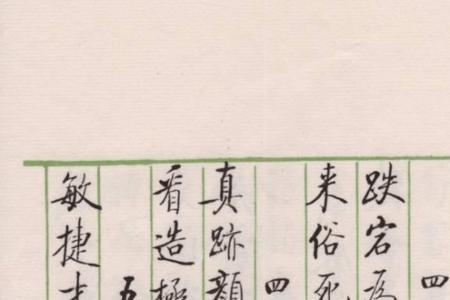 四
跌宕
来俗死
四
真跡顏
看造極
五
敏捷